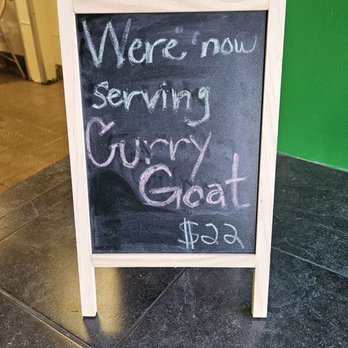 We're now
serving
Curry
Goat
$22